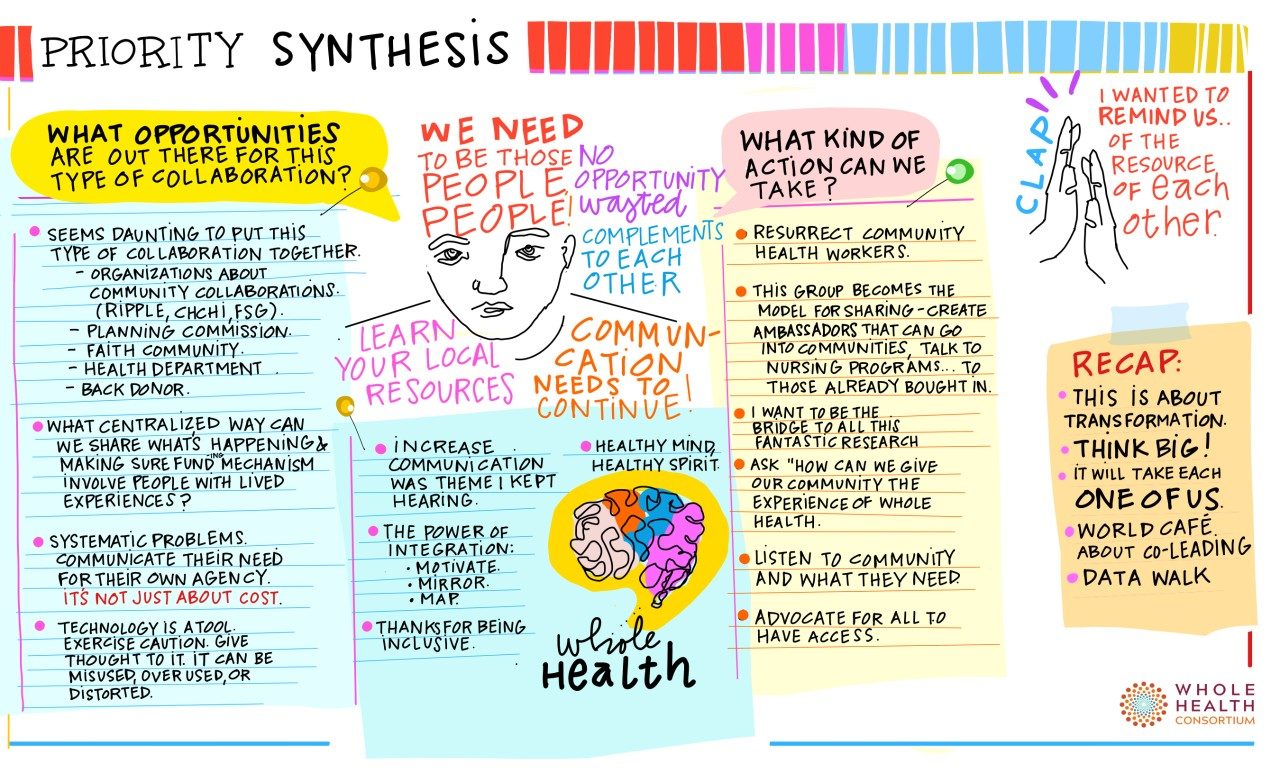 PRIORITY SYNTHESIS
WHAT OPPORTUNITIES
ARE OUT THERE FOR THIS
TYPE OF COLLABORATION?
SEEMS DAUNTING TO PUT THIS
TYPE OF COLLABORATION TOGETHER.
- ORGANIZATIONS ABOUT
COMMUNITY COLLABORATIONS.
(RIPPLE, CHCHI, FSG).
- PLANNING COMMISSION.
- FAITH COMMUNITY.
- HEALTH DEPARTMENT
- BACK DONOR.
WHAT CENTRALIZED WAY CAN
WE SHARE WHAT'S HAPPENING &
MAKING SURE FUNDING MECHANISM
INVOLVE PEOPLE WITH LIVED
EXPERIENCES?
SYSTEMATIC PROBLEMS.
COMMUNICATE THEIR NEED
FOR THEIR OWN AGENCY.
IT'S NOT JUST ABOUT COST.
TECHNOLOGY IS A TOOL.
EXERCISE CAUTION. GIVE
THOUGHT TO IT. IT CAN BE
MISUSED, OVER USED, OR
DISTORTED.
WE NEED
TO BE THOSE
PEOPLE,
PEOPLE!
NO
OPPORTUNITY
wasted
COMPLEMENTS
TO EACH
OTHER
LEARN
YOUR LOCAL
RESOURCES
COMMUN-
CATION
NEEDS TO
CONTINUE!
INCREASE
COMMUNICATION
WAS THEME I KEPT
HEARING.
THE POWER OF
INTEGRATION:
• MOTIVATE.
• MIRROR.
• MAP.
THANKS FOR BEING
INCLUSIVE.
HEALTHY MIND,
HEALTHY SPIRIT.
whole
Health
WHAT KIND OF
ACTION CAN WE
TAKE?
RESURRECT COMMUNITY
HEALTH WORKERS.
THIS GROUP BECOMES THE
MODEL FOR SHARING - CREATE
AMBASSADORS THAT CAN GO
INTO COMMUNITIES, TALK TO
NURSING PROGRAMS... TO
THOSE ALREADY BOUGHT IN.
I WANT TO BE THE
BRIDGE TO ALL THIS
FANTASTIC RESEARCH
ASK "HOW CAN WE GIVE
OUR COMMUNITY THE
EXPERIENCE OF WHOLE
HEALTH.
LISTEN TO COMMUNITY
AND WHAT THEY NEED
ADVOCATE FOR ALL TO
HAVE ACCESS.
CLAP
I WANTED TO
REMIND US..
OF THE
RESOURCE
OF each
other.
RECAP:
THIS IS ABOUT
TRANSFORMATION.
THINK BIG!
IT WILL TAKE EACH
ONE OF US.
WORLD CAFÉ.
ABOUT CO-LEADING
DATA WALK
WHOLE
HEALTH
CONSORTIUM